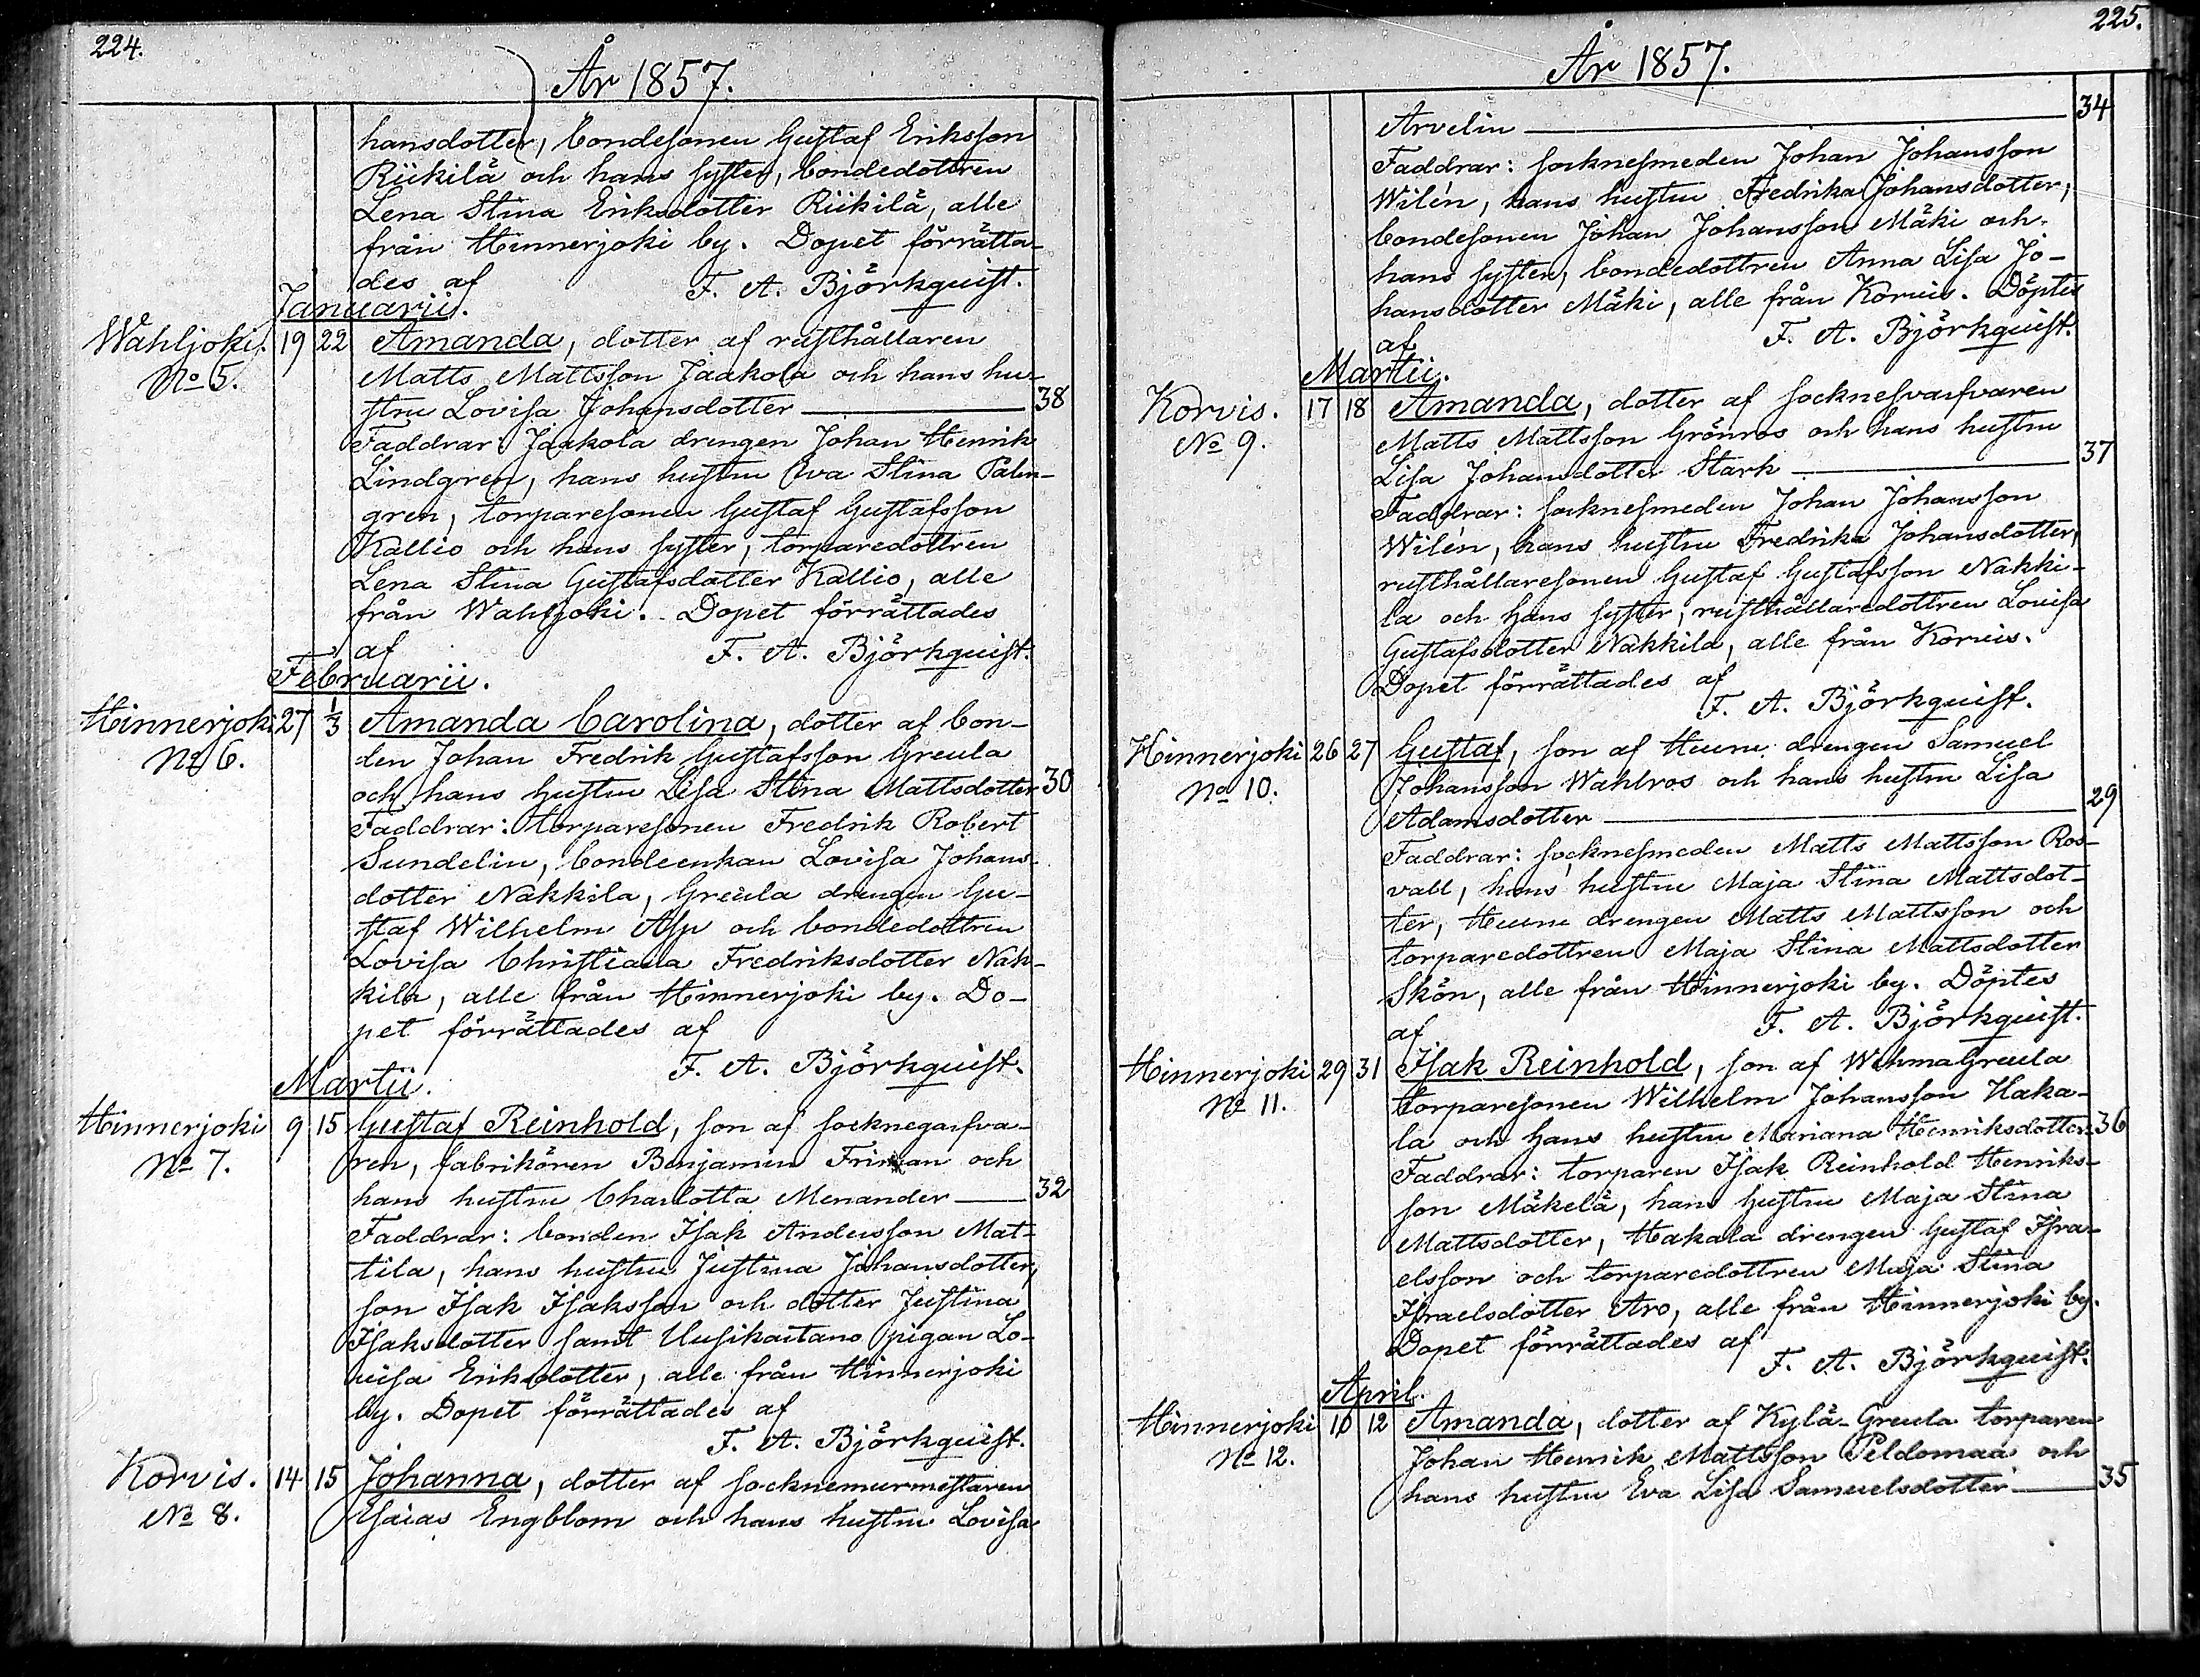 224.
År 1857.
hansdotter, bondesonen Gustaf Eriksson
Riikilä och hans syster, bondedottren
Lena Stina Eriksdotter Riikilä, alle
från Hinnerjoki by. Dopet förrätta-
des af F. A. Björkquist.
Januarii.
Wahljoki. 19 22 Amanda, dotter af rusthållaren
No 5. Matts Mattsson Jaakola och hans hu-
stru Lovisa Johansdotter — 38
Faddrar: Jaakola drengen Johan Henrik
Lindgren, hans hustru Eva Stina Palm-
gren, torparesonen Gustaf Gustafsson
Kallio och hans syster, torparedottren
Lena Stina Gustafsdotter Kallio, alle
från Wahljoki. Dopet förrättades
af F. A. Björkquist.
Februarii.
Hinnerjoki 27 1/3 Amanda Carolina, dotter af bon-
No 6. den Johan Fredrik Gustafsson Greula
och hans hustru Lisa Stina Mattsdotter 30
Faddrar: torparesonen Fredrik Robert
Sundelin, bondeenkan Lovisa Johans-
dotter Nakkila, Greula drengen Gu-
staf Wilhelm Asp och bondedottren
Lovisa Christiana Fredriksdotter Nak-
kila, alle från Hinnerjoki by. Do-
pet förrättades af
F. A. Björkquist.
Martii.
Hinnerjoki 9 15 Gustaf Reinhold, son af socknegarfva-
No 7. ren, fabrikören Benjamin Friman och
hans hustru Charlotta Menander — 32
Faddrar: bonden Isak Andersson Mat-
tila, hans hustru Justina Johansdotter,
son Isak Isaksson och dotter Justina
Isaksdotter samt Uusikartano pigan Lo-
visa Eriksdotter, alle från Hinnerjoki
by. Dopet förrättades af
F. A. Björkquist.
Korvis. 14 15 Johanna, dotter af socknemurmestaren
No 8. Esaias Engblom och hans hustru Lovisa
225.
År 1857.
Arvelin — 34
Faddrar: socknesmeden Johan Johansson
Wilén, hans hustru Fredrika Johansdotter,
bondesonen Johan Johansson Mäki och
hans syster, bondedottren Anna Lisa Jo-
hansdotter Mäki, alle från Korvis. Döptes
af F. A. Björkquist.
Martii.
Korvis. 17 18 Amanda, dotter af socknesvarfvaren
No 9. Matts Mattsson Grönros och hans hustru
Lisa Johansdotter Stark — 37
Faddrar: socknesmeden Johan Johansson
Wilén, hans hustru Fredrika Johansdotter,
rusthållaresonen Gustaf Gustafsson Nakki-
la och hans syster, rusthållaredottren Lovisa
Gustafsdotter Nakkila, alle från Korvis.
Dopet förrättades af
F. A. Björkquist.
Hinnerjoki 26 27 Gustaf, son af Heunu drengen Samuel
No 10. Johansson Wahlros och hans hustru Lisa
Adamsdotter — 29
Faddrar: socknesmeden Matts Mattsson Ros-
vall, hans hustru Maja Stina Mattsdot-
ter, Heunu drengen Matts Mattsson och
torparedottren Maja Stina Mattsdotter
Skön, alle från Hinnerjoki by. Döptes
af F. A. Björkquist.
Hinnerjoki 29 31 Isak Reinhold, son af Wehmä Greula
No 11. torparesonen Wilhelm Johansson Haka-
la och hans hustru Mariana Henriksdotter 36
Faddrar: torparen Isak Reinhold Henriks-
son Mäkelä, hans hustru Maja Stina
Mattsdotter, Hakala drengen Gustaf Isra-
elsson och torparedottren Maja Stina
Israelsdotter Aro, alle från Hinnerjoki by.
Dopet förrättades af
F. A. Björkquist.
April.
Hinnerjoki 10 12 Amanda, dotter af Kylä-Greula torparen
No 12. Johan Henrik Mattsson Peldomaa och
hans hustru Eva Lisa Samuelsdotter — 35